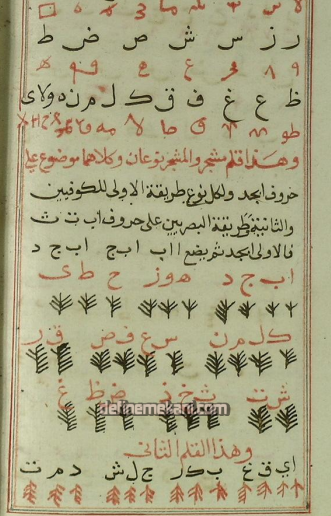 ر ز س ش ص ض ط
ظ ع غ ف ق ك ل م ن ه و لا ي
وهذا قلم مشجر والمشجر نوعان وكلاهما موضوع على
حروف ابجد ولكل نوع طريقة الاولى للكوفيين
والثانية طريقة البصريين على حروف ا ب ت ث
فالاولى ابجد ثم يضع ا ا ب ا ب ج ا ب ج د
ا ب ج د ه و ز ح ط ي
ك ل م ن س ع ف ص ق ر
ش ت ث خ ذ ض ظ غ
definemekani.com
وهذا القلم الثاني
ا ي ق غ ب ك ر ج ل ش د م ت